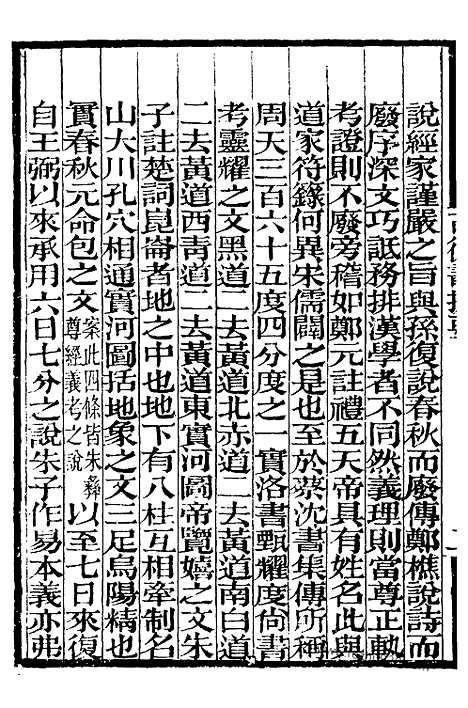 說經家謹嚴之旨與孫復說春秋而廢傳鄭樵說詩而
廢序深文巧詆務排漢學者不同然義理則當尊正軌
考證則不廢旁稽如鄭元註禮五天帝具有姓名此與
道家符籙何異宋儒闢之是也至於蔡沈書集傳所稱
周天三百六十五度四分度之一實洛書甄耀度尙書
考靈耀之文黑道二去黃道北赤道二去黃道南白道
二去黃道西靑道二去黃道東實河圖帝覽嬉之文朱
子註楚詞崑崙者地之中也地下有八柱互相牽制名
山大川孔穴相通實河圖括地象之文三足烏陽精也
實春秋元命包之文案此四條皆朱彝尊經義考之說以至七日來復
自王弼以來承用六日七分之說朱子作易本義亦弗